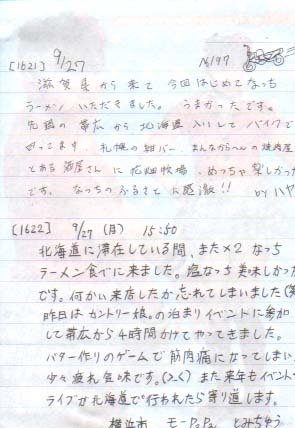 [1621] 9/27 No 197
滋賀県から来て今回はじめてなっち
ラーメンいただきました。うまかったです。
先週の帯広から北海道入りしてバイクで
回ってます。札幌の紺バー、まんなからへんの焼肉屋
とある酒屋さんに花畑牧場、めっちゃ楽しかっ
です。なっちのふるさとに感激!! by ハヤ
[1622] 9/27 (月) 15:50
北海道に滞在している間、また×2 なっち
ラーメン食べに来ました。塩なっち美味しかっ
です。何かい来店したか忘れてしまいました
昨日はカントリー娘。の泊まりイベントに参加
して帯広から4時間かけてやってきました。
バター作りのゲームで筋肉痛になってしまい、
少々疲れ気味です。(>_<) また来年もイベント
ライブが北海道で行われたら寄り道します。
横浜市 モーPaPa とみちゅう